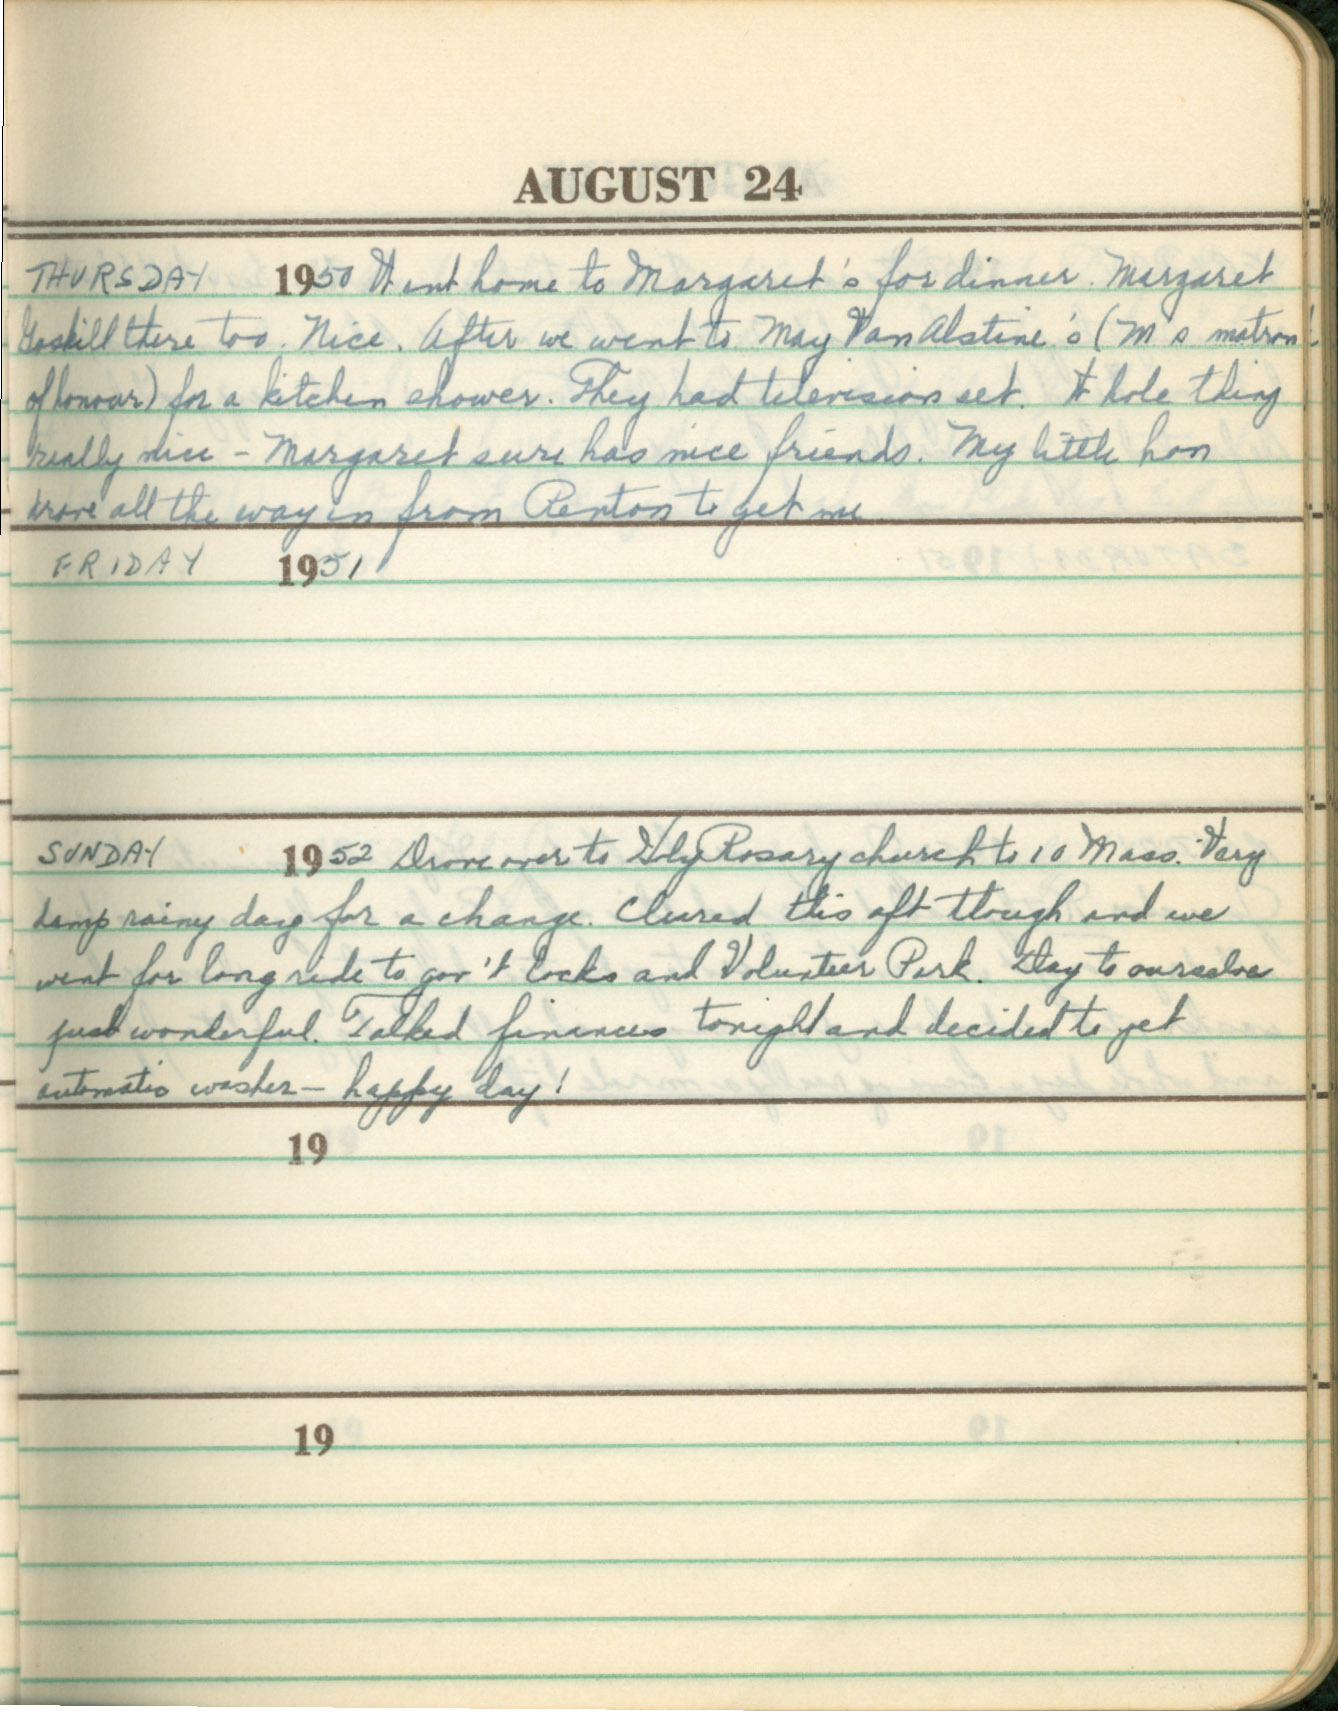 AUGUST 24
THURSDAY 1950 Went home to Margaret's for dinner. Margaret
Gaskill there too. Nice. After we went to May VanAlstine's (M's matron
of honour) for a kitchen shower. They had television set. Whole thing
really nice - Margaret sure has nice friends. My little hon
drove all the way in from Renton to get me
FRIDAY 1951
SUNDAY 1952 Drove over to Holy Rosary church to 10 Mass. Very
damp rainy day for a change. Cleared this aft though and we
went for long ride to gov't locks and Volunteer Park. Day to ourselves
just wonderful. Talked finances tonight and decided to get
automatic washer - happy day!
19
19